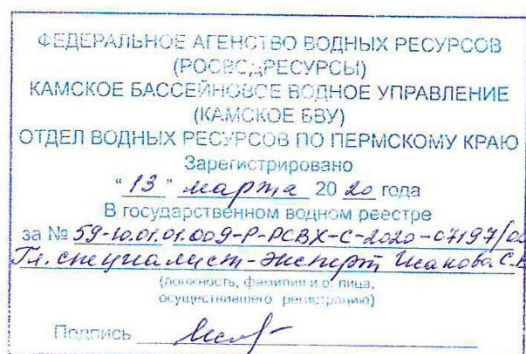 ФЕДЕРАЛЬНОЕ АГЕНСТВО ВОДНЫХ РЕСУРСОВ
(РОСВОДРЕСУРСЫ)
КАМСКОЕ БАССЕЙНОВОЕ ВОДНОЕ УПРАВЛЕНИЕ
(КАМСКОЕ БВУ)
ОТДЕЛ ВОДНЫХ РЕСУРСОВ ПО ПЕРМСКОМУ КРАЮ
Зарегистрировано
"13" марта 2020 года
В государственном водном реестре
за № 59-10.01.01.009-Р-РСВХ-С-2020-07197/00
Гл. специалист-эксперт
(должность, фамилия и.о. лица,
осуществившего регистрацию)
Подпись